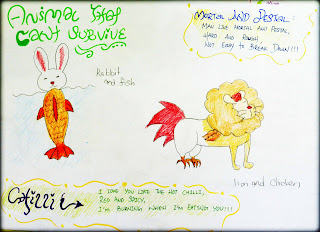 Animal that
Can't Survive
Rabbit
and fish
Mortar And Pestal:
Man like Mortal and Pestal,
Hard and Rough
Not Easy to Break Down!!!
lion and Chicken
Chilli
I love you like the hot chilli,
Red and Spicy,
I'm burning when I'm eating you!!!